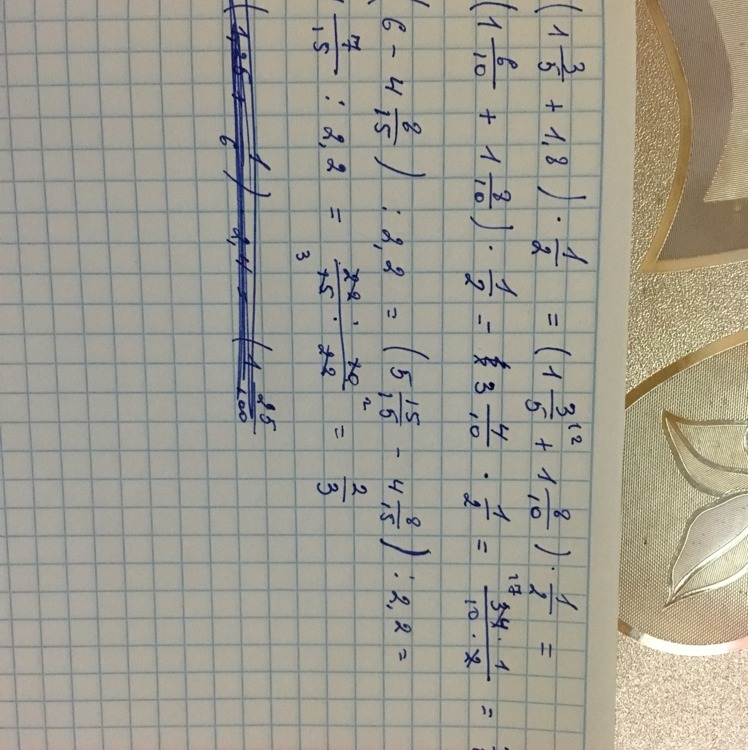 (1 3/5 + 1,8) · 1/2 = (1 3/5 + 1 8/10) · 1/2 =
(1 6/10 + 1 8/10) · 1/2 = 3 4/10 · 1/2 = 34 · 1/10 · 2 =
(6 - 4 8/15) : 2,2 = (5 15/15 - 4 8/15) : 2,2 =
7/15 : 2,2 = 22 · 10/15 · 22 = 2/3